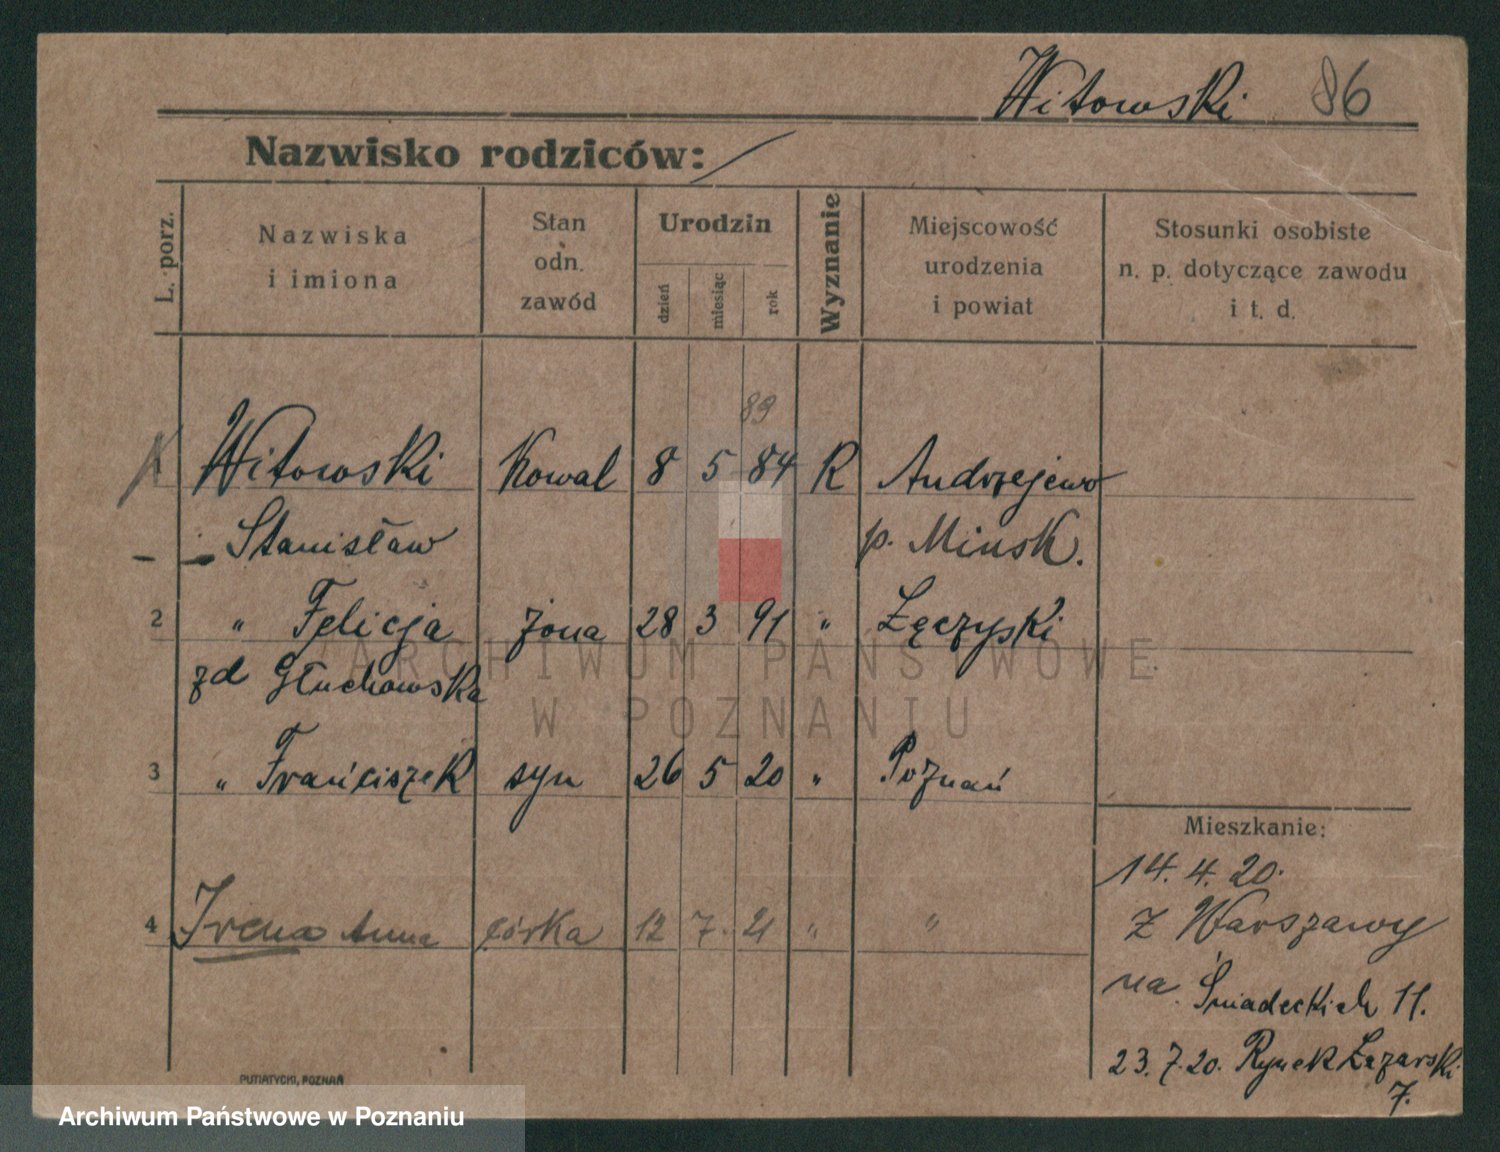 Witowski 86
Nazwisko rodziców:
L. porz.
Nazwiska
i imiona
Stan
odn.
zawód
Urodzin
dzień
miesiąc
rok
Wyznanie
Miejscowość
urodzenia
i powiat
Stosunki osobiste
n. p. dotyczące zawodu
i t. d.
89
1 Witowski Kowal 8 5 84 R Andrzejewo
Stanisław p. Minsk.
2 " Felicja żona 28 3 91 " Łęczyski
zd Głuchowska
3 " Frańciszek syn 26 5 20 " Poznań
4 Irena Anna córka 12 7. 21 " "
Mieszkanie:
14. 4. 20.
z Warszawy
na Śniadeckich 11.
23. 7. 20. Rynek Łazarski
7.
PUTIATYCKI, POZNAŃ
ARCHIWUM PAŃSTWOWE
W POZNANIU
Archiwum Państwowe w Poznaniu